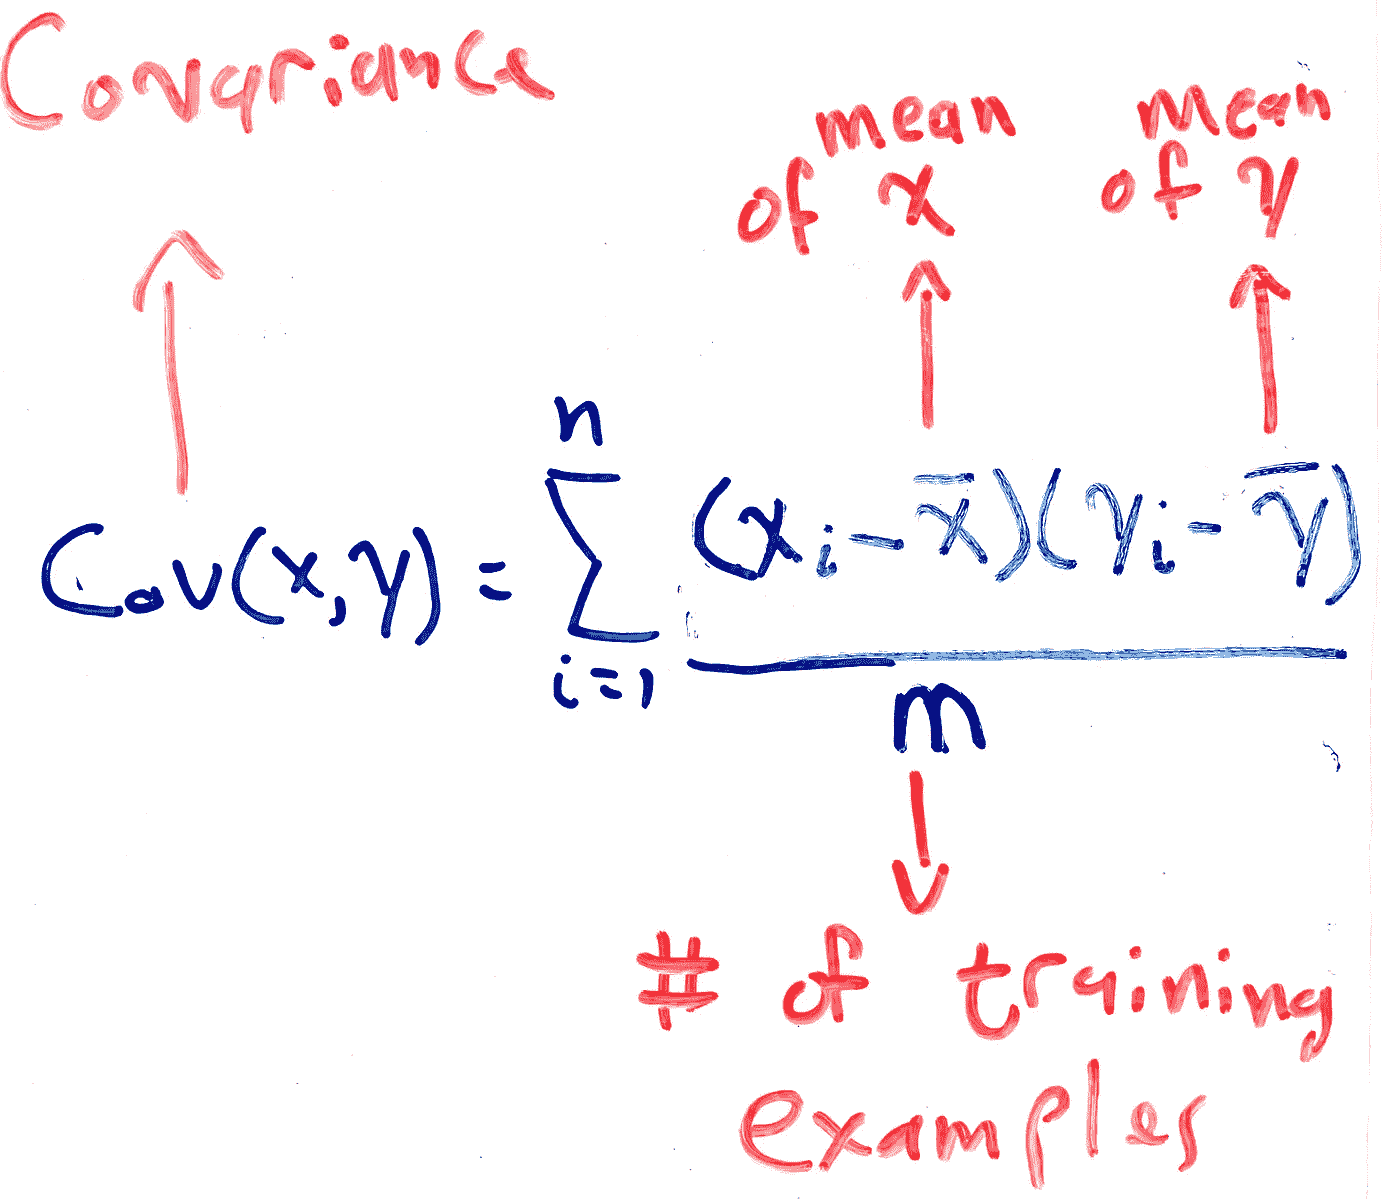 Covariance
mean
of x
mean
of y
n
Cov(x,y) = ∑ (xi - x̄)(yi - ȳ)
i=1
m
# of training
examples